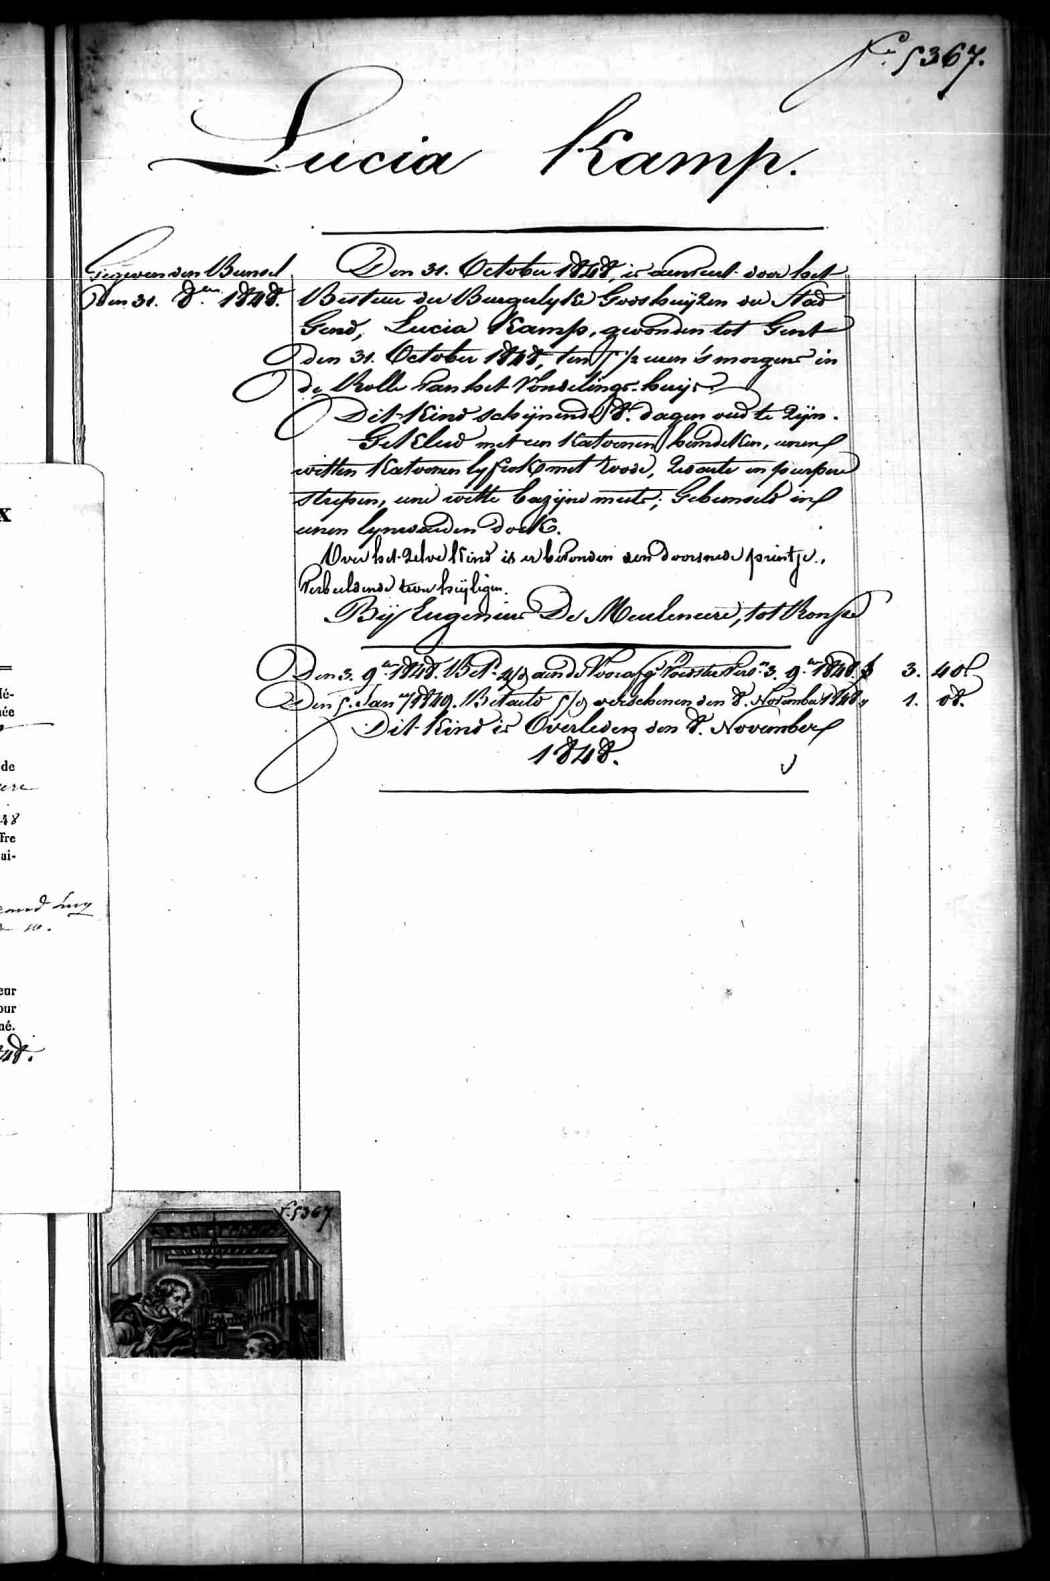 N.° 5367.
Lucia Kamp.
Gegeven den Bunsel
den 31. 8.er 1848.
Den 31. October 1848, is aenveert door het
Bestuer der Burgerlyke Godshuyzen der Stad
Gend, Lucia Kamp, gevonden tot Gent
den 31. October 1848, ten 5 1/2 uren 's morgens in
de Rolle van het Vondelings-huys.
Dit Kind schynende 8. dagen oud te zyn.
Gekleed met een Katoenen hemdeken, eenen
witten Katoenen lyfrok met roode, zwarte en purpere
strepen, eene witte bazyne muts; Gebunseld in
eenen lynwaeden doek.
Over het zelve Kind is er bevonden een doorsnede printje,
verbeeldende twee heyligen.
By Eugenius De Meuleneire, tot Ronsse
Den 3. 9.er 1848. Bet. aende Voorafg 3. 9.er 1848. 3. 40
Den 5. Jan 1849. Betaeld verschenen den 8. November 1848. 1. 08.
Dit Kind is Overleden den 8. November
1848.
N. 5367
x
lé-
née
de
48
fre
ui-
eur
our
né.